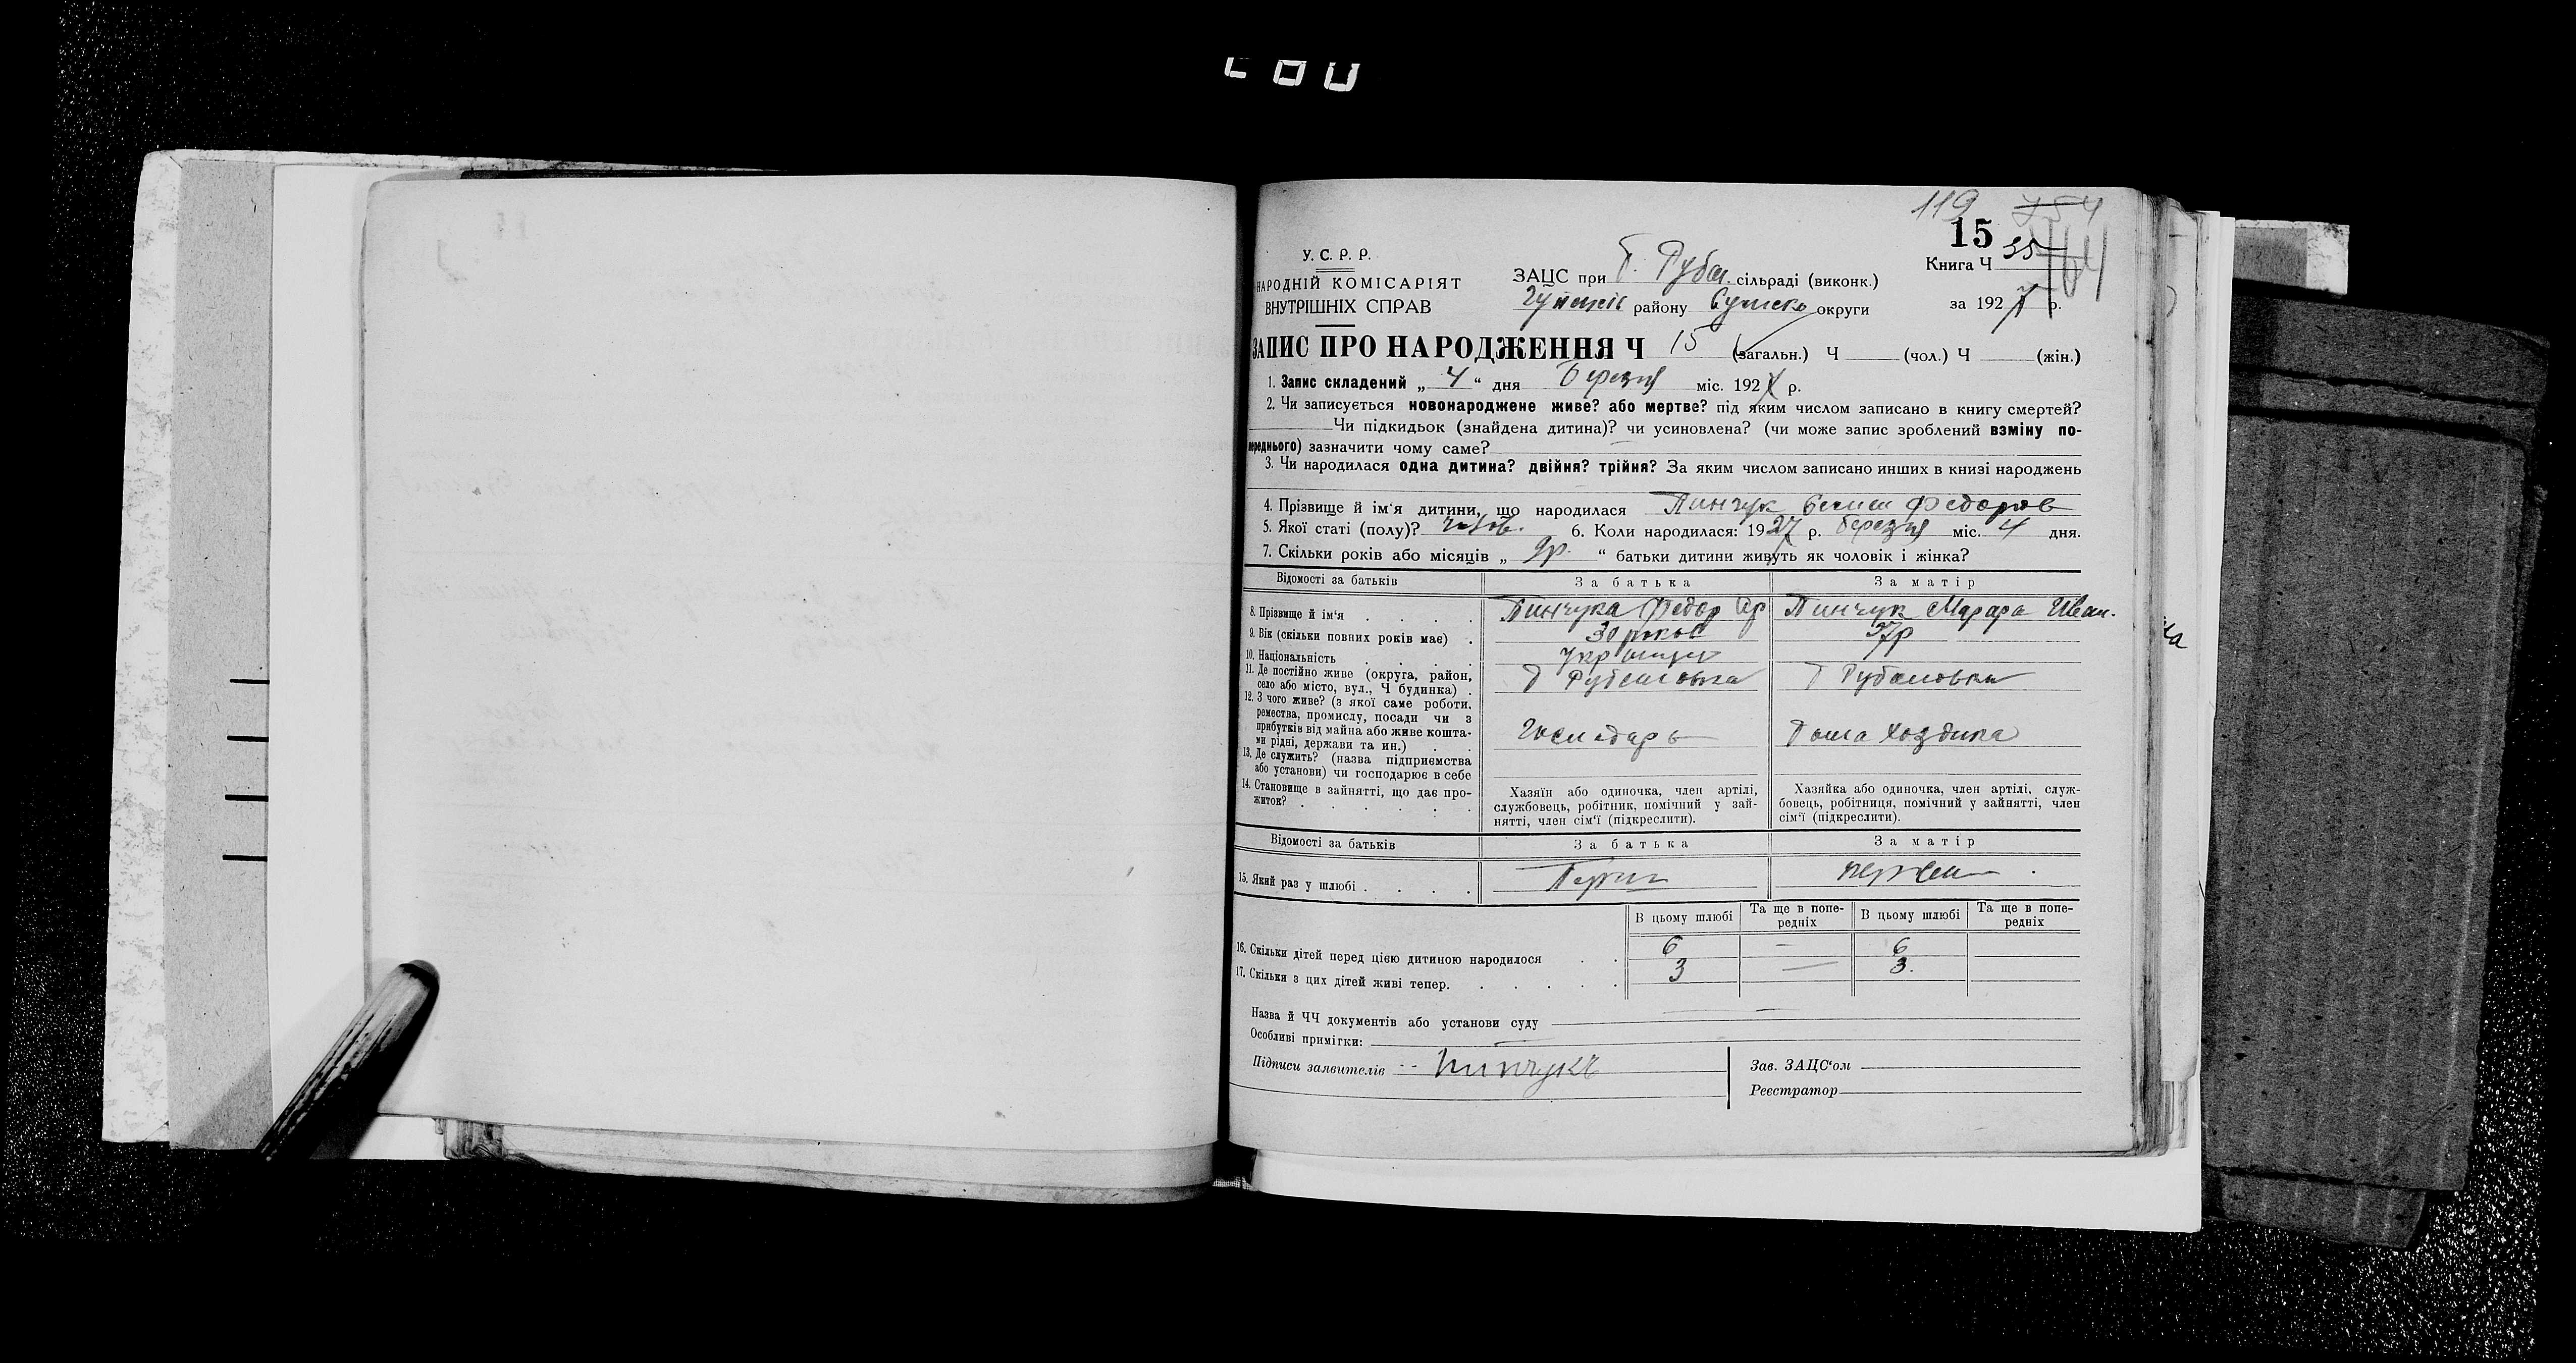 119 254
15
У. С. Р. Р.
НАРОДНІЙ КОМІСАРІЯТ
ВНУТРІШНІХ СПРАВ
ЗАЦС при Б. Рубан. сільраді (виконк.)
району Сумсько округи
Книга Ч 35
за 1927 р.
ЗАПИС ПРО НАРОДЖЕННЯ Ч 15 (загальн.) Ч (чол.) Ч (жін.)
1. Запис складений „ 4 “ дня березня міс. 1927 р.
2. Чи записується новонароджене живе? або мертве? під яким числом записано в книгу смертей?
Чи підкидьок (знайдена дитина)? чи усиновлена? (чи може запис зроблений взміну по-
переднього) зазначити чому саме?
3. Чи народилася одна дитина? двійня? трійня? За яким числом записано инших в книзі народжень
4. Прізвище й ім'я дитини, що народилася Пинчук Федоров
5. Якої статі (полу)? чолов. 6. Коли народилася: 1927 р. березня міс. 4 дня.
7. Скільки років або місяців „ 9р. “ батьки дитини живуть як чоловік і жінка?
Відомості за батьків За батька За матір
8. Прізвище й ім'я . . . . Пинчука Федор Пинчук Иван.
9. Вік (скільки повних років має) . 30 роков 37р
10. Національність . . . .
11. Де постійно живе (округа, район,
село або місто, вул., Ч будинка) . Рубановка Рубановка
12. З чого живе? (з якої саме роботи,
ремества, промислу, посади чи з
прибутків від майна або живе кошта-
ми рідні, держави та ин.) . . Господарь
13. Де служить? (назва підприємства
або установи) чи господарює в себе
14. Становище в зайнятті, що дає про-
житок? . . . . . .
Хазяїн або одиночка, член артілі,
службовець, робітник, помічний у зай-
нятті, член сім'ї (підкреслити).
Хазяйка або одиночка, член артілі, служ-
бовець, робітниця, помічний у зайнятті, член
сім'ї (підкреслити).
Відомості за батьків За батька За матір
15. Який раз у шлюбі . . . .
В цьому шлюбі Та ще в попе- В цьому шлюбі Та ще в попе-
редніх редніх
16. Скільки дітей перед цією дитиною народилося . . 6 — 6
17. Скільки з цих дітей живі тепер. . . . . . 3 — 3.
Назва й ЧЧ документів або установи суду
Особливі примітки:
Підписи заявителів -- Пинчукъ
Зав. ЗАЦС'ом
Реєстратор